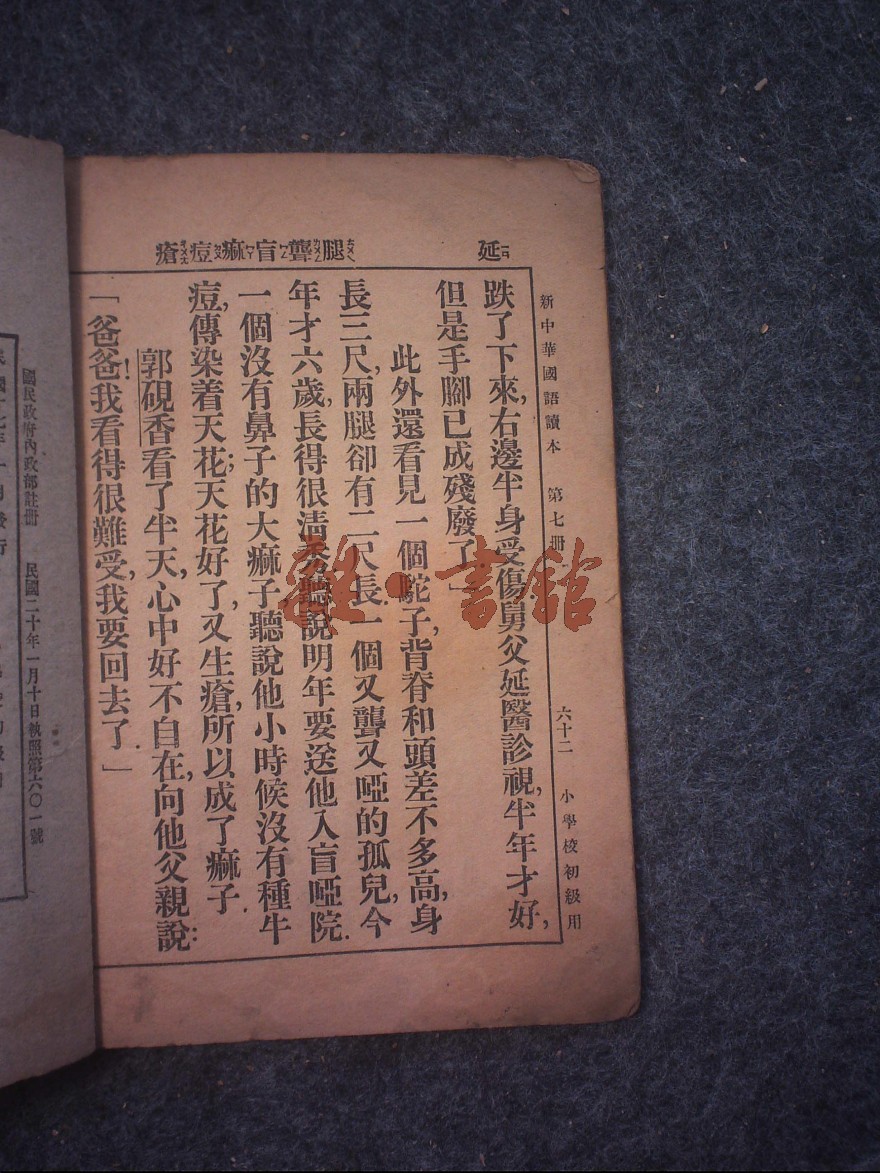 新中華國語讀本　第七冊　六十二　小學校初級用
延ㄧㄢ
腿ㄊㄨㄟ聾ㄌㄨㄥ盲ㄇㄤ痲ㄇㄚ痘ㄉㄡ瘡ㄔㄨㄤ
跌了下來,右邊半身受傷舅父延醫診視,半年才好,
但是手腳已成殘廢了」
此外還看見一個駝子,背脊和頭差不多高,身
長三尺,兩腿卻有二尺長.一個又聾又啞的孤兒,今
年才六歲,長得很清秀,聽說明年要送他入盲啞院.
一個沒有鼻子的大痲子聽說他小時候沒有種牛
痘,傳染着天花;天花好了,又生瘡,所以成了痲子.
郭硯香看了半天,心中好不自在,向他父親說:
「爸爸!我看得很難受,我要回去了.」
國民政府內政部註冊　民國二十年一月十日執照第六〇一號